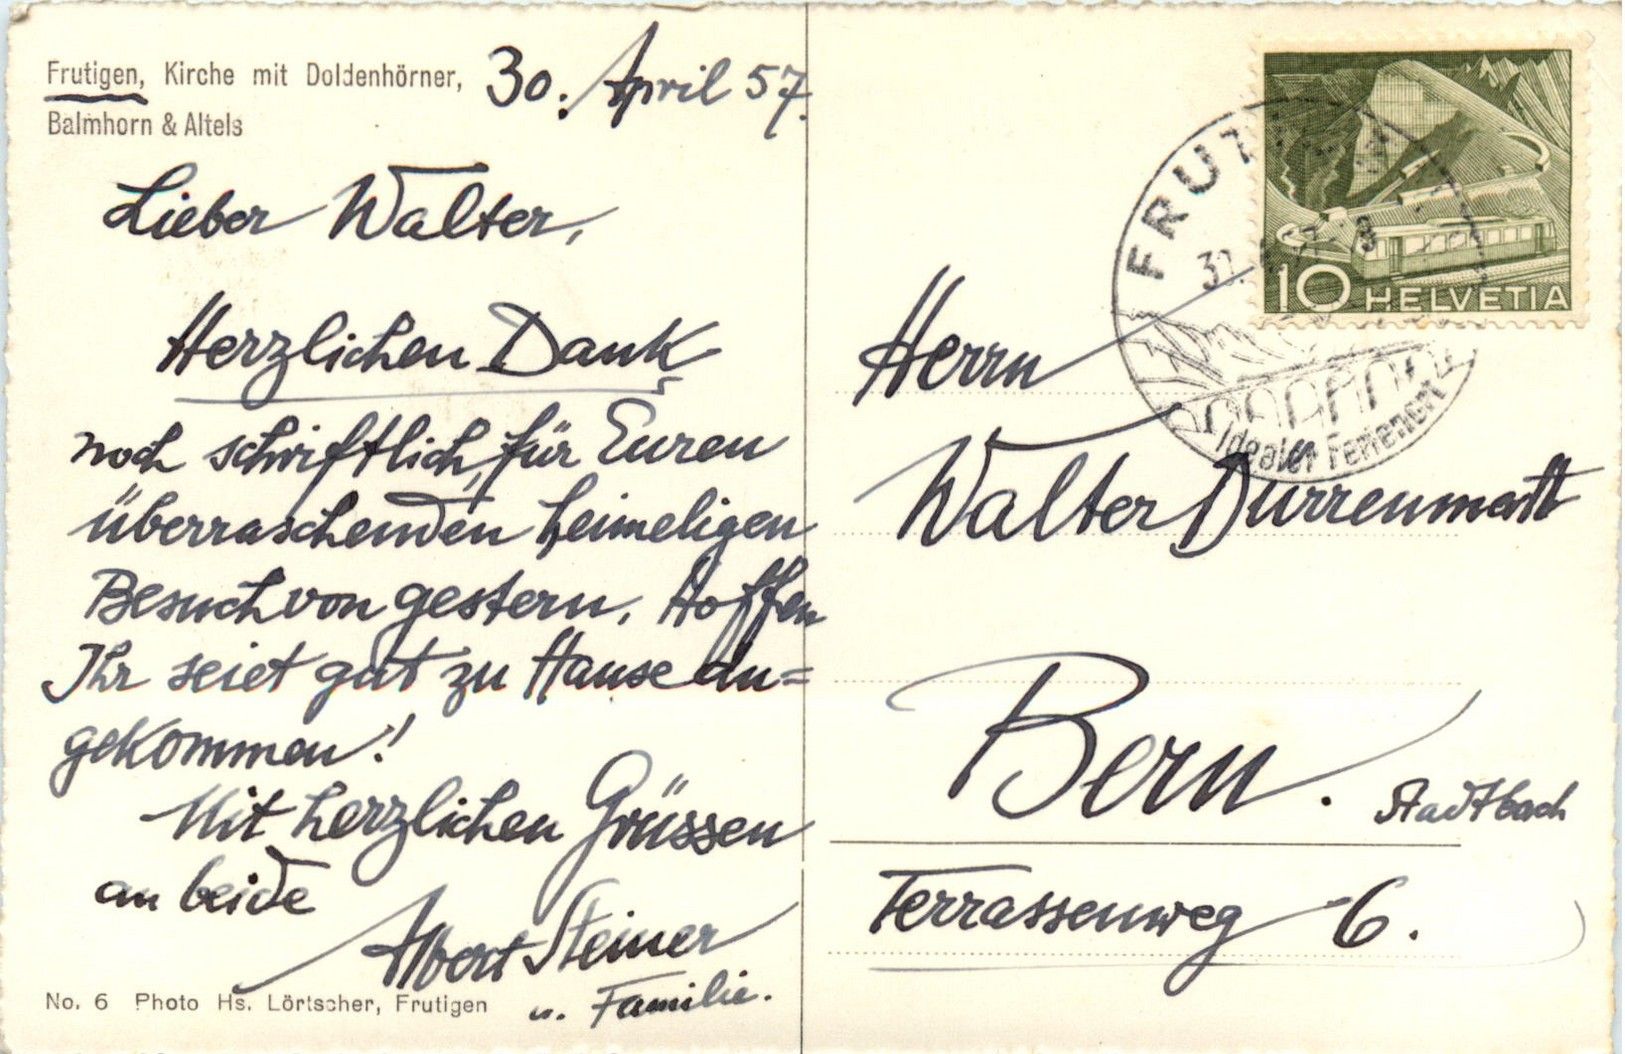 Frutigen, Kirche mit Doldenhörner,
Balmhorn & Altels
30. April 57.
Lieber Walter,
Herzlichen Dank
noch schriftlich, für Euren
überraschenden heimeligen
Besuch von gestern. Hoffen
Ihr seiet gut zu Hause an=
gekommen!
Mit herzlichen Grüssen
an beide
Albert Steiner
u. Familie.
No. 6 Photo Hs. Lörtscher, Frutigen
10 HELVETIA
Idealer Ferienort
Herrn
Walter Dürrenmatt
Bern.
Stadtbach
Terrassenweg 6.